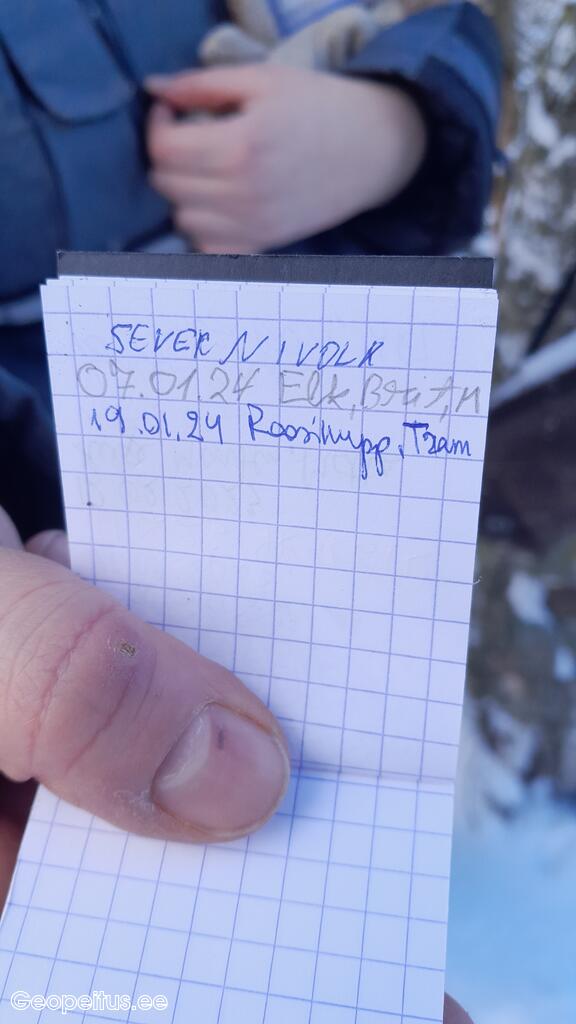 SEVERNIVOLK
07.01.24 Elk,
19.01.24 Roosinupp, Tram
Geopeitus.ee